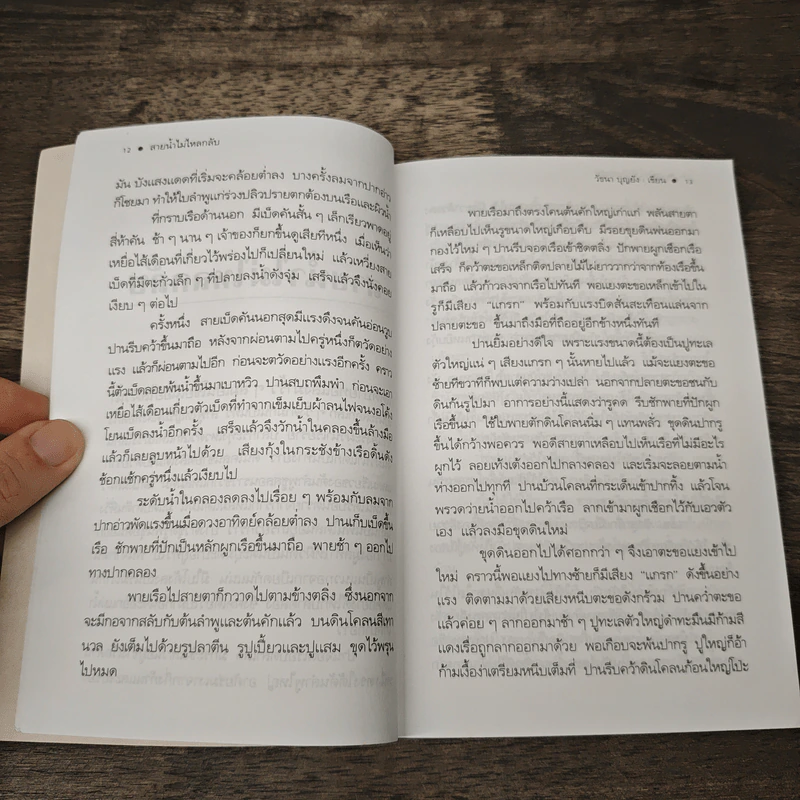 12 ● สายน้ำไม่ไหลกลับ
มัน บังแสงแดดที่เริ่มจะคล้อยต่ำลง บางครั้งลมจากปากอ่าว
ก็โชยมา ทำให้ใบลำพูแก่ร่วงปลิวปรายตกต้องบนเรือและผิวน้ำ
ที่กราบเรือด้านนอก มีเบ็ดคันสั้น ๆ เล็กเรียวพาดอยู่
สี่ห้าคัน ช้า ๆ นาน ๆ เจ้าของก็ยกขึ้นดูเสียทีหนึ่ง เมื่อเห็นว่า
เหยื่อไส้เดือนที่เกี่ยวไว้พร่องไปก็เปลี่ยนใหม่ แล้วเหวี่ยงสาย
เบ็ดที่มีตะกั่วเล็ก ๆ ที่ปลายลงน้ำดังจุ๋ม เสร็จแล้วจึงนั่งคอย
เงียบ ๆ ต่อไป
ครั้งหนึ่ง สายเบ็ดคันนอกสุดมีแรงดึงจนคันอ่อนวูบ
ปานรีบคว้าขึ้นมาถือ หลังจากผ่อนตามไปครู่หนึ่งก็ตวัดอย่าง
แรง แล้วก็ผ่อนตามไปอีก ก่อนจะตวัดอย่างแรงอีกครั้ง คราว
นี้ตัวเบ็ดลอยพ้นน้ำขึ้นมาเบาหวิว ปานสบถพึมพำ ก่อนจะเอา
เหยื่อไส้เดือนเกี่ยวตัวเบ็ดที่ทำจากเข็มเย็บผ้าลนไฟจนงอโค้ง
โยนเบ็ดลงน้ำอีกครั้ง เสร็จแล้วจึงวักน้ำในคลองขึ้นล้างมือ
แล้วก็เลยลูบหน้าไปด้วย เสียงกุ้งในกระชังข้างเรือดีนดัง
ช้อกแช้กครู่หนึ่งแล้วเงียบไป
ระดับน้ำในคลองลดลงไปเรื่อย ๆ พร้อมกับลมจาก
ปากอ่าวพัดแรงขึ้นเมื่อดวงอาทิตย์คล้อยต่ำลง ปานเก็บเบ็ดขึ้น
เรือ ชักพายที่ปักเป็นหลักผูกเรือขึ้นมาถือ พายช้า ๆ ออกไป
ทางปากคลอง
พายเรือไปสายตาก็กวาดไปตามข้างตลิ่ง ซึ่งนอกจาก
จะมีกอจากสลับกับต้นลำพูและต้นคักแล้ว บนดินโคลนสีเทา
นวล ยังเต็มไปด้วยรูปลาตีน รูปูเปี้ยวและปูแสม ขุดไว้พรุน
ไปหมด
วัธนา บุญยัง : เขียน ● 13
พายเรือมาถึงตรงโคนต้นคักใหญ่เก่าแก่ พลันสายตา
ก็เหลือบไปเห็นรูขนาดใหญ่เกือบคืบ มีรอยขุยดินพ่นออกมา
กองไว้ใหม่ ๆ ปานรีบจอดเรือเข้าชิดตลิ่ง ปักพายผูกเชือกเรือ
เสร็จ ก็คว้าตะขอเหล็กติดปลายไม้ไผ่ยาววากว่าจากท้องเรือขึ้น
มาถือ แล้วก้าวลงจากเรือไปทันที พอแยงตะขอเหล็กเข้าไปใน
รูก็มีเสียง “แกรก” พร้อมกับแรงบิดสั่นสะเทือนแล่นจาก
ปลายตะขอ ขึ้นมาถึงมือที่ถืออยู่อีกข้างหนึ่งทันที
ปานยิ้มอย่างดีใจ เพราะแรงขนาดนี้ต้องเป็นปูทะเล
ตัวใหญ่แน่ ๆ เสียงแกรก ๆ นั้นหายไปแล้ว แม้จะแยงตะขอ
ซ้ายทีขวาทีก็พบแต่ความว่างเปล่า นอกจากปลายตะขอชนกับ
ดินก้นรูไปมา อาการอย่างนี้แสดงว่ารูคด รีบชักพายที่ปักผูก
เรือขึ้นมา ใช้ใบพายตักดินโคลนนิ่ม ๆ แทนพลั่ว ขุดดินปากรู
ขึ้นได้กว้างพอควร พอดีสายตาเหลือบไปเห็นเรือที่ไม่มีอะไร
ผูกไว้ ลอยเท้งเต้งออกไปกลางคลอง และเริ่มจะลอยตามน้ำ
ห่างออกไปทุกที ปานบ้วนโคลนที่กระเด็นเข้าปากทิ้ง แล้วโจน
พรวดว่ายน้ำออกไปคว้าเรือ ลากเข้ามาผูกเชือกไว้กับเอวตัว
เอง แล้วลงมือขุดดินใหม่
ขุดดินออกไปได้ศอกกว่า ๆ จึงเอาตะขอแยงเข้าไป
ใหม่ คราวนี้พอแยงไปทางซ้ายก็มีเสียง “แกรก” ดังขึ้นอย่าง
แรง ติดตามมาด้วยเสียงหนีบตะขอดังกร้วม ปานคว่ำตะขอ
แล้วค่อย ๆ ลากออกมาช้า ๆ ปูทะเลตัวใหญ่ดำทะมึนมีก้ามสี
แดงเรื่อถูกลากออกมาด้วย พอเกือบจะพ้นปากรู ปูใหญ่ก็อ้า
ก้ามเงื้อง่าเตรียมหนีบเต็มที่ ปานรีบคว้าดินโคลนก้อนใหญ่โปะ